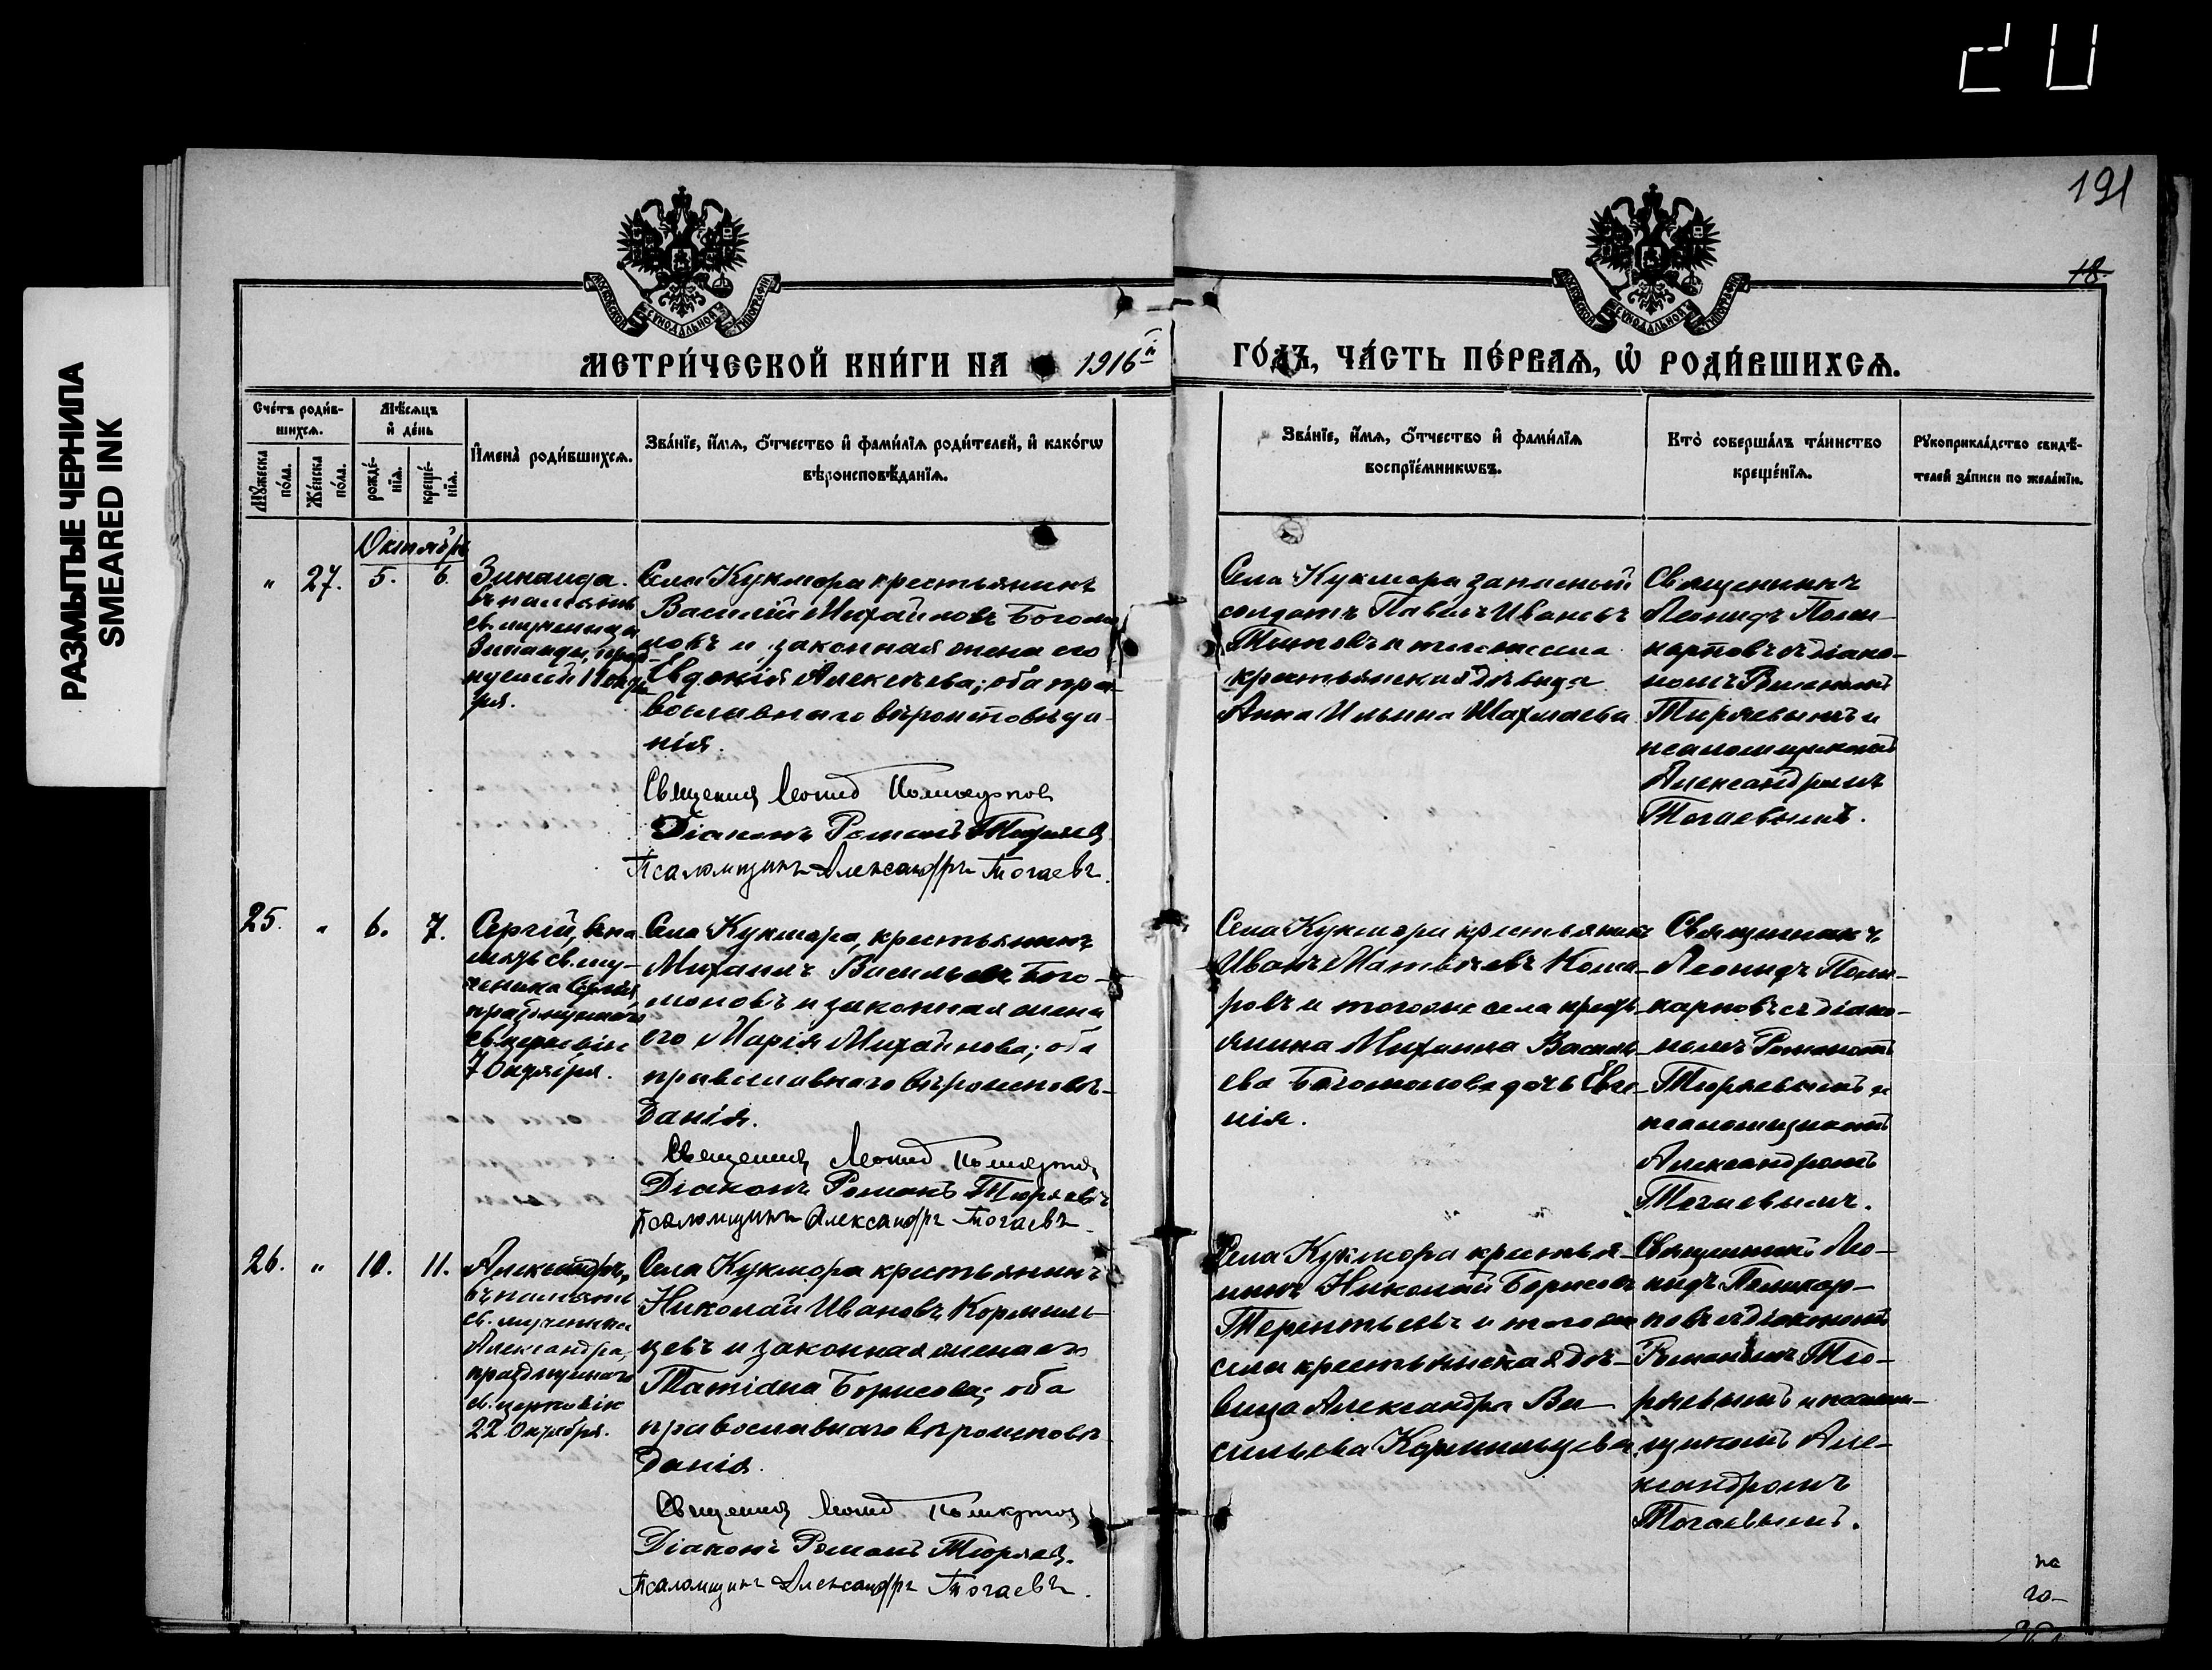 20
191
18.
РАЗМЫТЫЕ ЧЕРНИЛА
SMEARED INK
МОСКОВСКОЙ СѴНОДАЛЬНОЙ ТИПОГРАФІИ
МОСКОВСКОЙ СѴНОДАЛЬНОЙ ТИПОГРАФІИ
МЕТРИ́ЧЕСКОЙ КНИ́ГИ НА 1916й
ГО́ДЪ, ЧА́СТЬ ПЕ́РВАѦ, Ѡ҆ РОДИ́ВШИХСѦ.
Сче́тъ роди́в-
шихсѧ.
Мꙋ́жеска
по́ла.
Же́нска
по́ла.
Мѣ́сѧцъ
и҆ де́нь
рожде́-
нїѧ.
креще́-
нїѧ.
И҆мена̀ роди́вшихсѧ.
Зва́нїе, и҆́мѧ, ѻ҆́тчество и҆ фами́лїѧ роди́телей, и҆ како́гѡ
вѣроисповѣ́данїѧ.
Зва́нїе, и҆́мѧ, ѻ҆́тчество и҆ фами́лїѧ
воспрїе́мникѡвъ.
Кто̀ соверша́лъ та́инство
креще́нїѧ.
Рꙋкоприкла́дство свидѣ́-
телей за́писи по жела́нїю.
Октябрь
" 27. 5. 6.
Зинаида.
въ память
св. мученицы
Зинаиды, праз-
Села Кукмора крестьянинъ
Василій Михайловъ Богомо-
ловъ и законная жена его
Евдокія Алексѣева; оба пра-
вославнаго вѣроисповѣда-
нія.
Священник Леонид Поликарпов
Діаконъ Романъ Тюряев
Псаломщикъ Александръ Тогаевъ.
Села Кукмора запасный
солдатъ Павелъ Ивановъ
Титовъ и того же села
крестьянская дѣвица
Анна Ильина Шахмаева
Священникъ
Леонидъ Поли-
карповъ съ діако-
номъ Романомъ
Тюряевымъ и
псаломщикомъ
Александромъ
Тогаевымъ.
25. " 6. 7.
Сергій, въ па-
мять св. му-
ченика Сергія,
празднуемаго
св. церковію
7 Октября.
Села Кукмора, крестьянинъ
Михаилъ Васильевъ Бого-
моловъ и законная жена
его Марія Михайлова; оба
православнаго вѣроисповѣ-
данія.
Священник Леонид Поликарпов
Діаконъ Романъ Тюряевъ
Псаломщикъ Александръ Тогаевъ.
Села Кукмора крестьянинъ
Иванъ Матвѣевъ Кома-
ровъ и того же села кресть-
янина Михаила Василь-
ева Богомолова дочь Евге-
нія.
Священникъ
Леонидъ Поли-
карповъ съ діако-
номъ Романомъ
Тюряевымъ и
псаломщикомъ
Александромъ
Тогаевымъ.
26. " 10. 11.
Александръ,
въ память
св. мученика
Александра,
празднуемаго
св. церковію
22 Октября.
Села Кукмора крестьянинъ
Николай Ивановъ Кормиль-
цевъ и законная жена его
Татіана Борисова; оба
православнаго вѣроисповѣ-
данія.
Священник Леонид Поликарпов
Діаконъ Романъ Тюряев.
Псаломщикъ Александръ Тогаевъ.
Села Кукмора крестья-
нинъ Николай Борисовъ
Терентьевъ и того же
села крестьянская дѣ-
вица Александра Ва-
сильева Кормильцева
Священникъ Лео-
нидъ Поликар-
повъ съ діакономъ
Романомъ Тю-
ряевымъ и псалом-
щикомъ Але-
ксандромъ
Тогаевымъ.